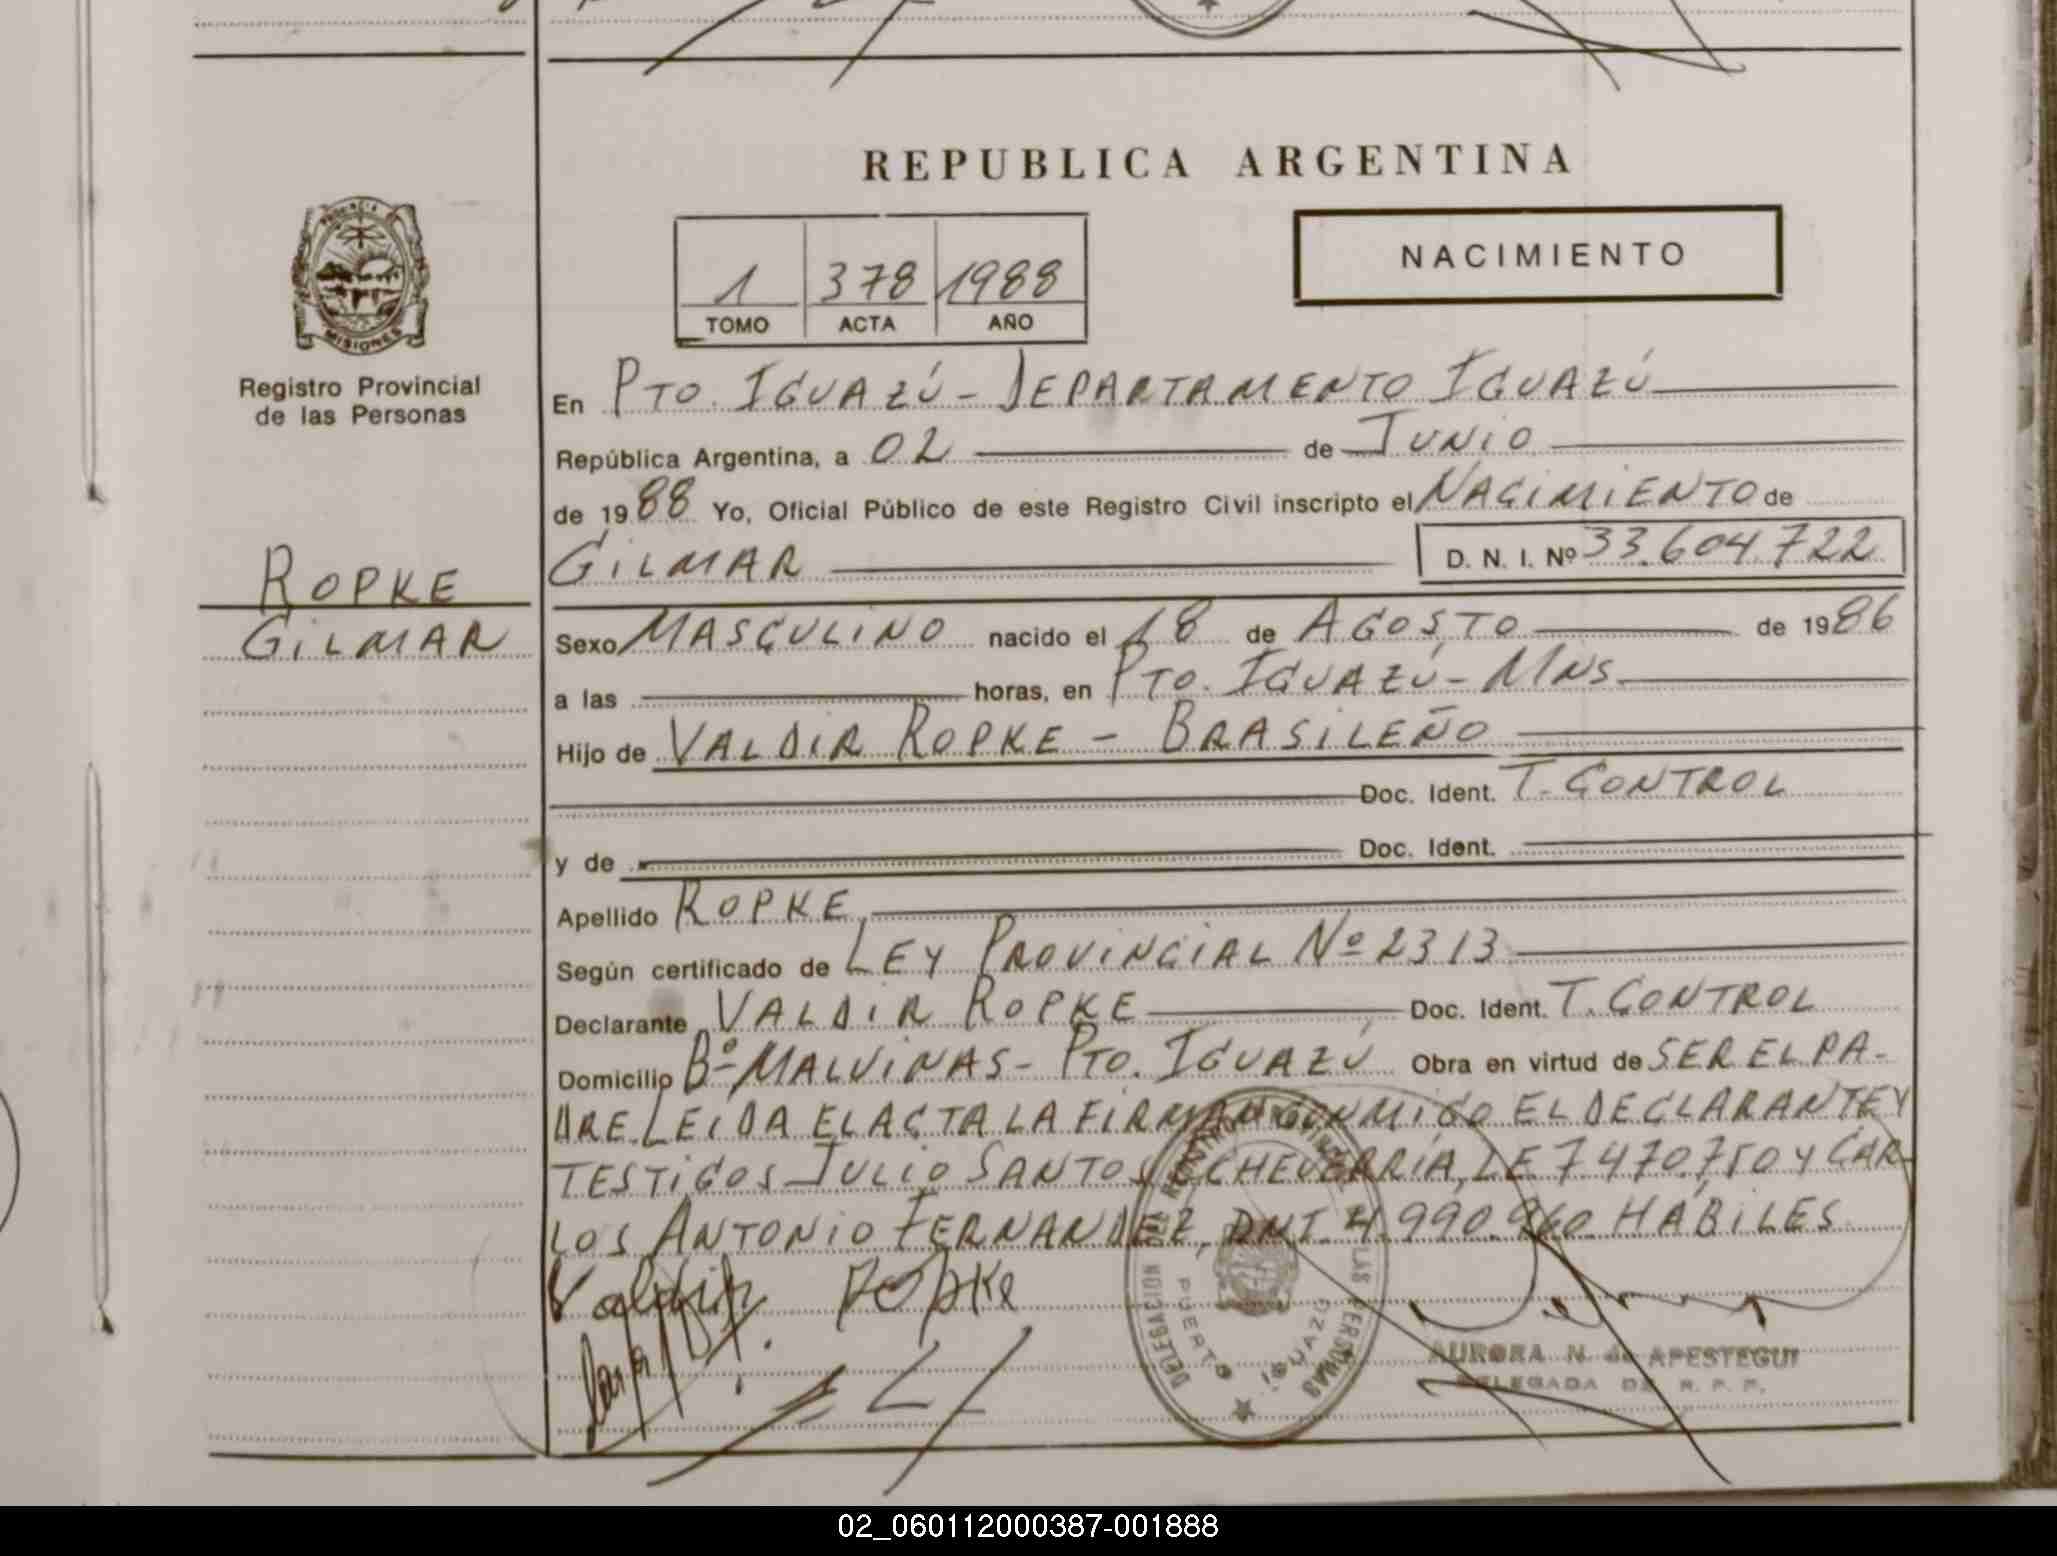 REPUBLICA ARGENTINA
PROVINCIA
MISIONES
Registro Provincial
de las Personas
1 378 1988
TOMO ACTA AÑO
NACIMIENTO
ROPKE
GILMAR
En PTO. IGUAZÚ - DEPARTAMENTO IGUAZÚ
República Argentina, a 02 de JUNIO
de 1988 Yo, Oficial Público de este Registro Civil inscripto el NACIMIENTO de
GILMAR D. N. I. Nº 33.604.722
Sexo MASCULINO nacido el 18 de AGOSTO de 1986
a las horas, en PTO. IGUAZÚ - MNS
Hijo de VALDIR ROPKE - BRASILEÑO
Doc. Ident. T. CONTROL
y de Doc. Ident.
Apellido ROPKE
Según certificado de LEY PROVINCIAL Nº 2313
Declarante VALDIR ROPKE Doc. Ident. T. CONTROL
Domicilio Bº MALVINAS - PTO. IGUAZÚ Obra en virtud de SER EL PA-
DRE. LEIDA EL ACTA LA FIRMAN CONMIGO EL DECLARANTE Y
TESTIGOS JULIO SANTOS ECHEVERRÍA, LE 7470.750 Y CAR-
LOS ANTONIO FERNANDEZ, DNI. 4.990.960. HÁBILES
Valdir Ropke
DELEGACION DEL REGISTRO PROVINCIAL DE LAS PERSONAS
PUERTO IGUAZU
AURORA N. de APESTEGUI
DELEGADA DE R. P. P.
02_060112000387-001888